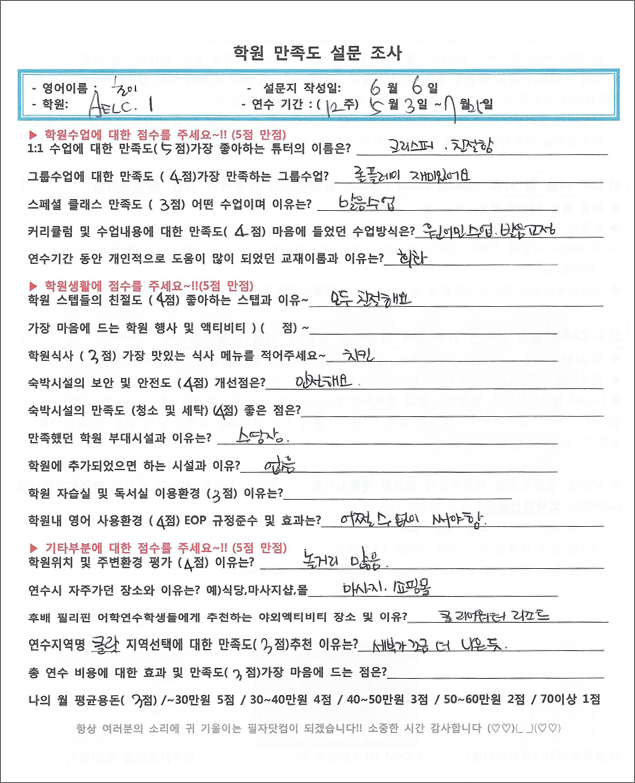 학원 만족도 설문 조사
- 영어이름 : - 설문지 작성일: 6 월 6 일
- 학원: AELC. 1 - 연수 기간 : (12주) 5 월 3 일 ~ 7 월 21 일
▶ 학원수업에 대한 점수를 주세요~!! (5점 만점)
1:1 수업에 대한 만족도( 5 점)가장 좋아하는 튜터의 이름은? 크리스퍼. 친절함
그룹수업에 대한 만족도 ( 4점)가장 만족하는 그룹수업? 롤플레이 재미있어요
스페셜 클래스 만족도 ( 3점) 어떤 수업이며 이유는? 발음수업
커리큘럼 및 수업내용에 대한 만족도( 4 점) 마음에 들었던 수업방식은? 원어민수업. 발음교정
연수기간 동안 개인적으로 도움이 많이 되었던 교재이름과 이유는? 회화
▶ 학원생활에 점수를 주세요~!!(5점 만점)
학원 스텝들의 친절도 (4점) 좋아하는 스탭과 이유~ 모두 친절해요
가장 마음에 드는 학원 행사 및 액티비티 ) ( 점) ~
학원식사 ( 3점) 가장 맛있는 식사 메뉴를 적어주세요~ 치킨
숙박시설의 보안 및 안전도 (4점) 개선점은? 안전해요.
숙박시설의 만족도 (청소 및 세탁) (4점) 좋은 점은?
만족했던 학원 부대시설과 이유는? 수영장.
학원에 추가되었으면 하는 시설과 이유? 없음
학원 자습실 및 독서실 이용환경 (3점) 이유는?
학원내 영어 사용환경 (4점) EOP 규정준수 및 효과는? 어쩔수 없이 써야함.
▶ 기타부분에 대한 점수를 주세요~!! (5점 만점)
학원위치 및 주변환경 평가 (4점) 이유는? 놀거리 많음.
연수시 자주가던 장소와 이유는? 예)식당,마사지샵,몰 마사지. 쇼핑몰
후배 필리핀 어학연수학생들에게 추천하는 야외액티비티 장소 및 이유? 클리어워터 리조트
연수지역명 클락 지역선택에 대한 만족도( 3 점)추천 이유는? 세부가 조금 더 나은듯.
총 연수 비용에 대한 효과 및 만족도( 3 점)가장 마음에 드는 점은?
나의 월 평균용돈( 3점) /~30만원 5점 / 30~40만원 4점 / 40~50만원 3점 / 50~60만원 2점 / 70이상 1점
항상 여러분의 소리에 귀 기울이는 필자닷컴이 되겠습니다!! 소중한 시간 감사합니다 (♡♡)(_ _)(♡♡)